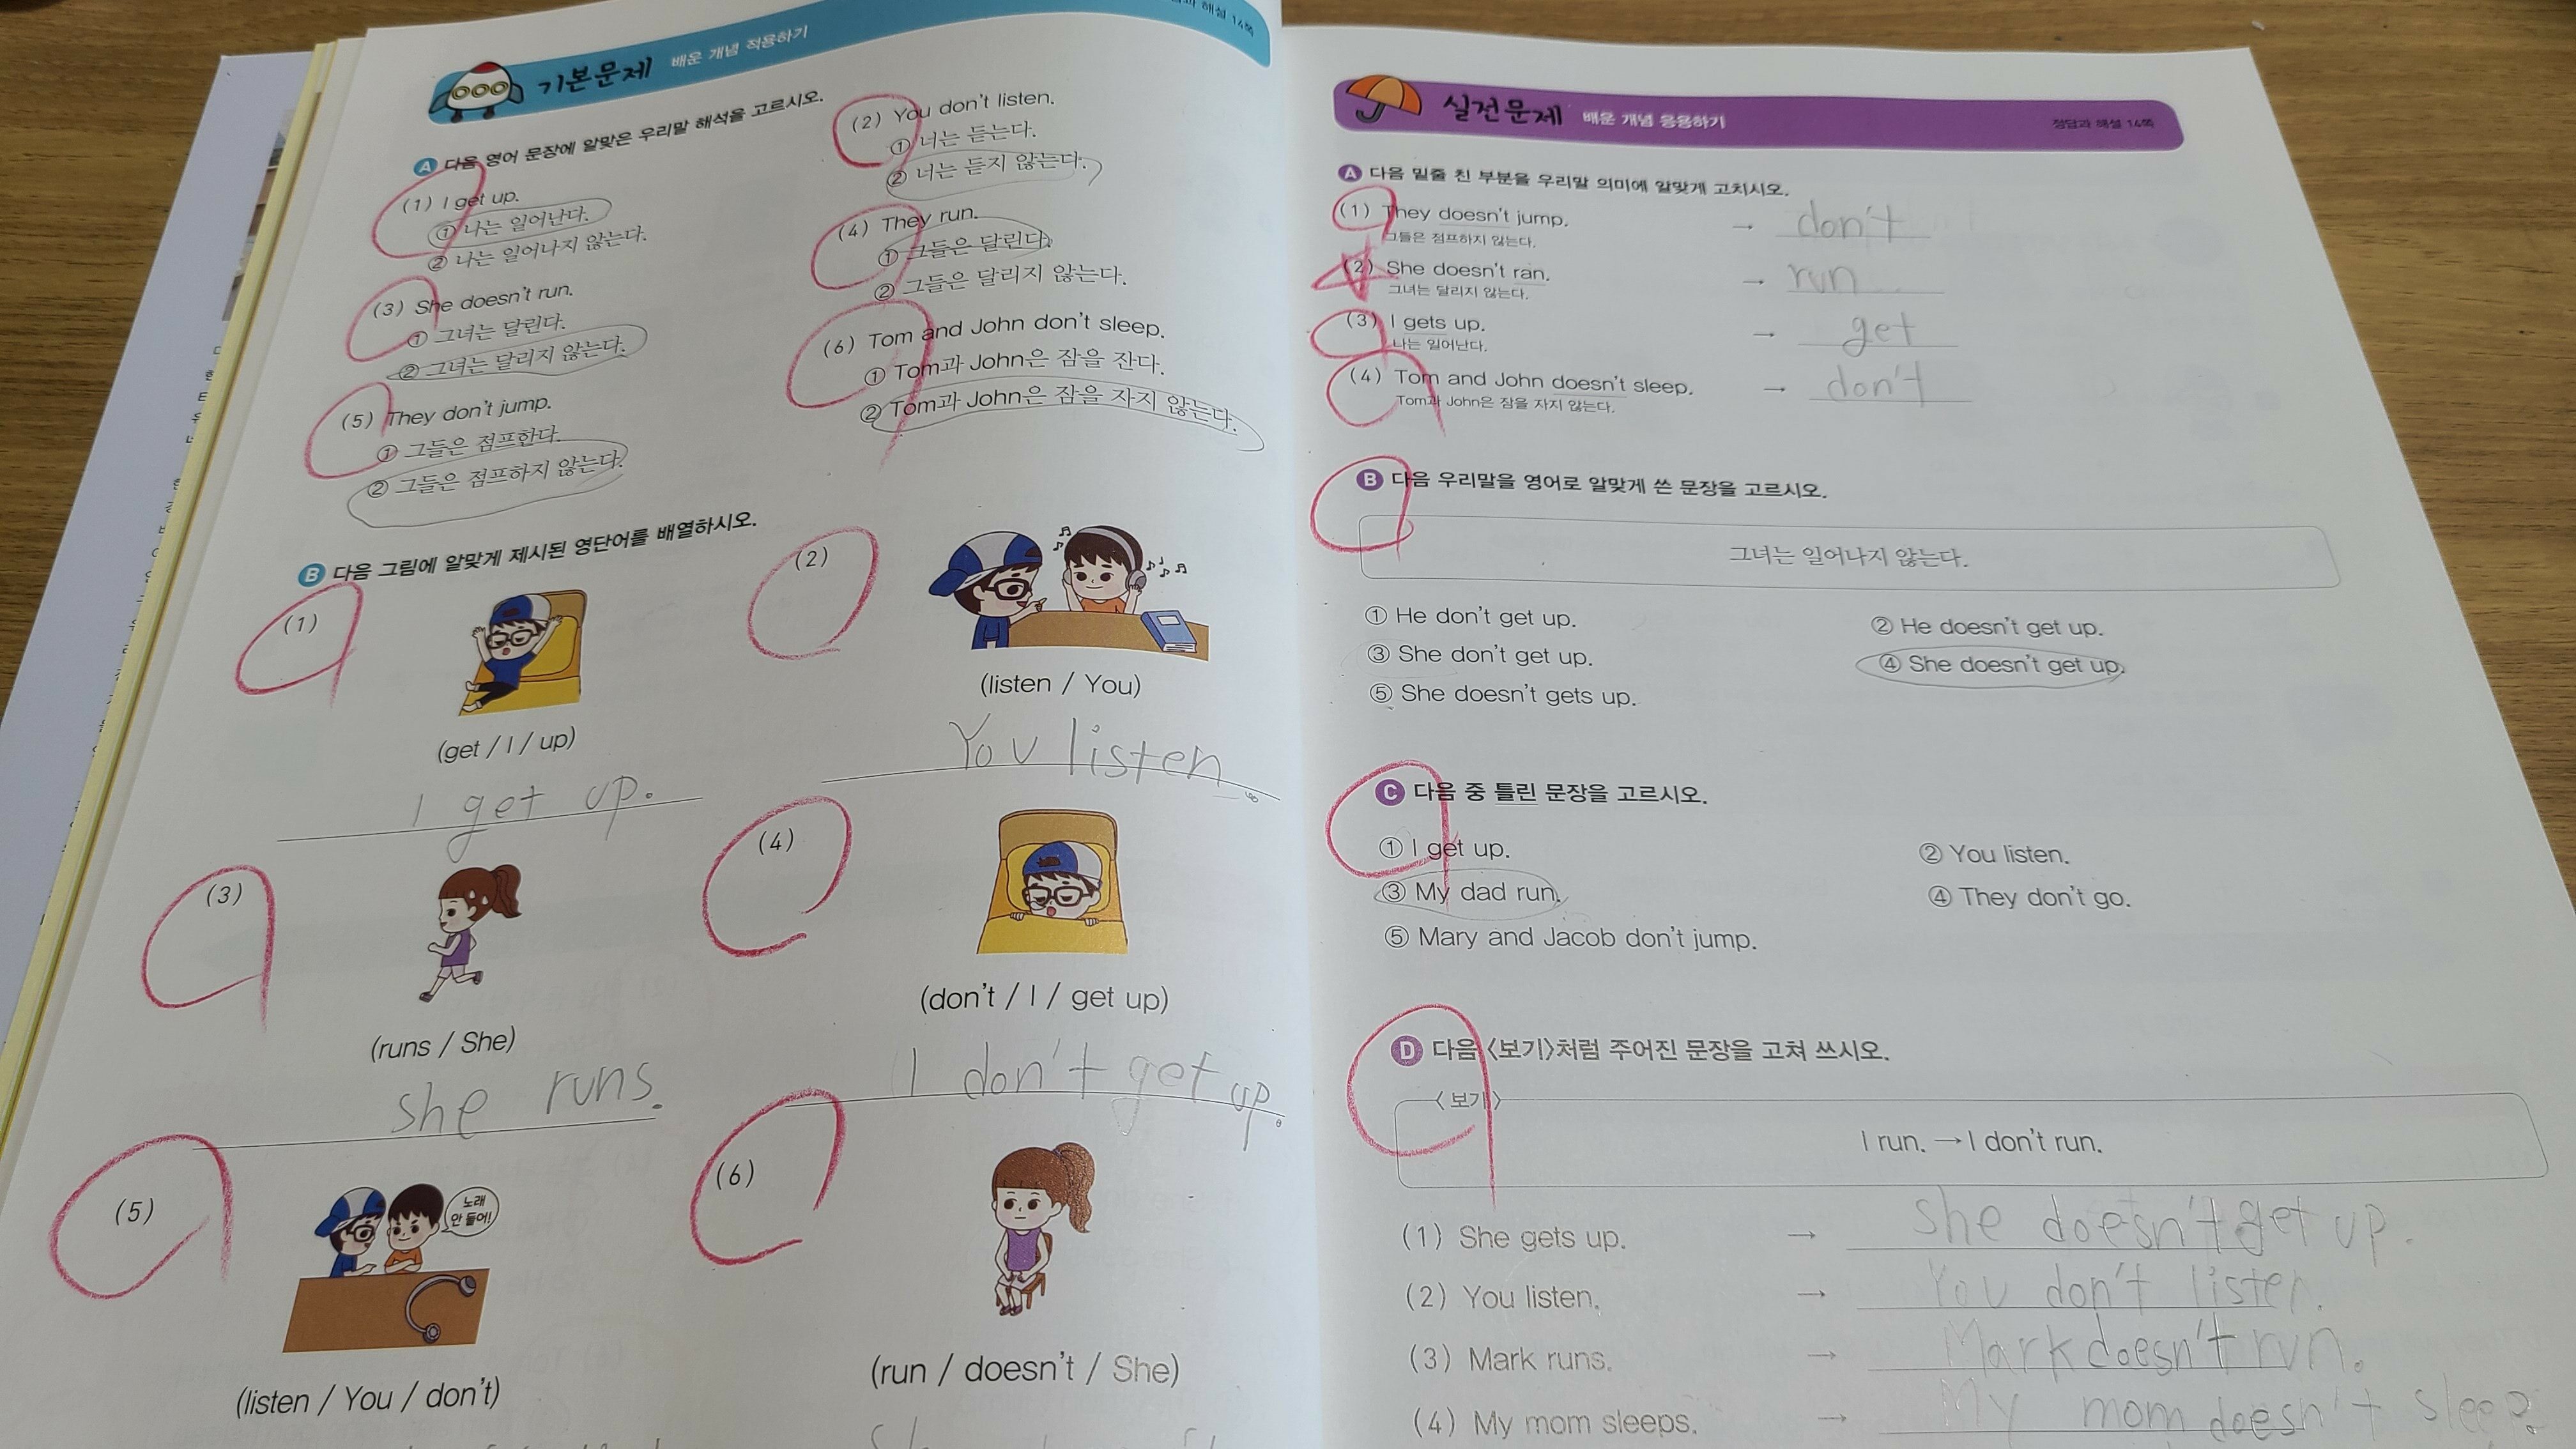 기본문제 배운 개념 적용하기
해설 14쪽
A 다음 영어 문장에 알맞은 우리말 해석을 고르시오.
(1) I get up.
① 나는 일어난다.
② 나는 일어나지 않는다.
(2) You don't listen.
① 너는 듣는다.
② 너는 듣지 않는다.
(3) She doesn't run.
① 그녀는 달린다.
② 그녀는 달리지 않는다.
(4) They run.
① 그들은 달린다.
② 그들은 달리지 않는다.
(5) They don't jump.
① 그들은 점프한다.
② 그들은 점프하지 않는다.
(6) Tom and John don't sleep.
① Tom과 John은 잠을 잔다.
② Tom과 John은 잠을 자지 않는다.
B 다음 그림에 알맞게 제시된 영단어를 배열하시오.
(1)
(get / I / up)
I get up.
(2)
(listen / You)
You listen.
(3)
(runs / She)
she runs.
(4)
(don't / I / get up)
I don't get up.
(5)
노래
안 들어!
(listen / You / don't)
(6)
(run / doesn't / She)
실전문제 배운 개념 응용하기
정답과 해설 14쪽
A 다음 밑줄 친 부분을 우리말 의미에 알맞게 고치시오.
(1) They doesn't jump. → don't
그들은 점프하지 않는다.
(2) She doesn't ran. → run
그녀는 달리지 않는다.
(3) I gets up. → get
나는 일어난다.
(4) Tom and John doesn't sleep. → don't
Tom과 John은 잠을 자지 않는다.
B 다음 우리말을 영어로 알맞게 쓴 문장을 고르시오.
그녀는 일어나지 않는다.
① He don't get up.
② He doesn't get up.
③ She don't get up.
④ She doesn't get up.
⑤ She doesn't gets up.
C 다음 중 틀린 문장을 고르시오.
① I get up.
② You listen.
③ My dad run.
④ They don't go.
⑤ Mary and Jacob don't jump.
D 다음 〈보기〉처럼 주어진 문장을 고쳐 쓰시오.
〈보기〉
I run. → I don't run.
(1) She gets up. → she doesn't get up.
(2) You listen. → You don't listen.
(3) Mark runs. → Mark doesn't run.
(4) My mom sleeps. → My mom doesn't sleep.